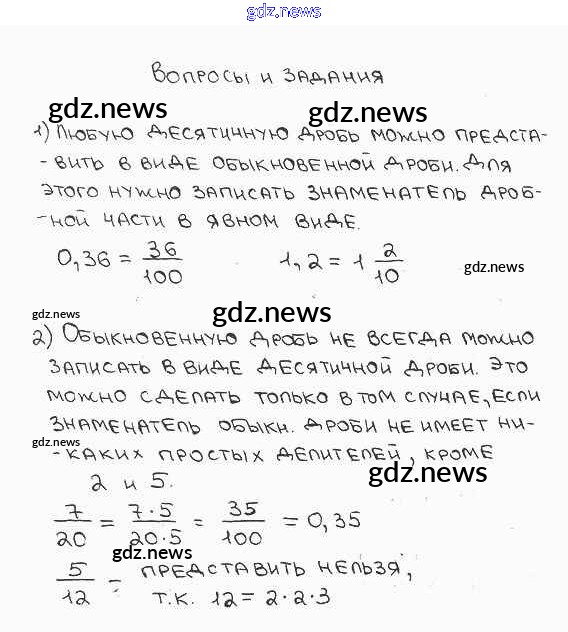 gdz.news
Вопросы и задания
gdz.news gdz.news
1) Любую десятичную дробь можно предста-
-вить в виде обыкновенной дроби. Для
этого нужно записать знаменатель дроб-
-ной части в явном виде.
0,36 = 36/100 1,2 = 1 2/10 gdz.news
gdz.news gdz.news
2) Обыкновенную дробь не всегда можно
записать в виде десятичной дроби. Это
можно сделать только в том случае, если
знаменатель обыкн. дроби не имеет ни-
gdz.news
-каких простых делителей, кроме
2 и 5. gdz.news
7/20 = 7·5/20·5 = 35/100 = 0,35
gdz.news
5/12 = представить нельзя,
т.к. 12 = 2·2·3